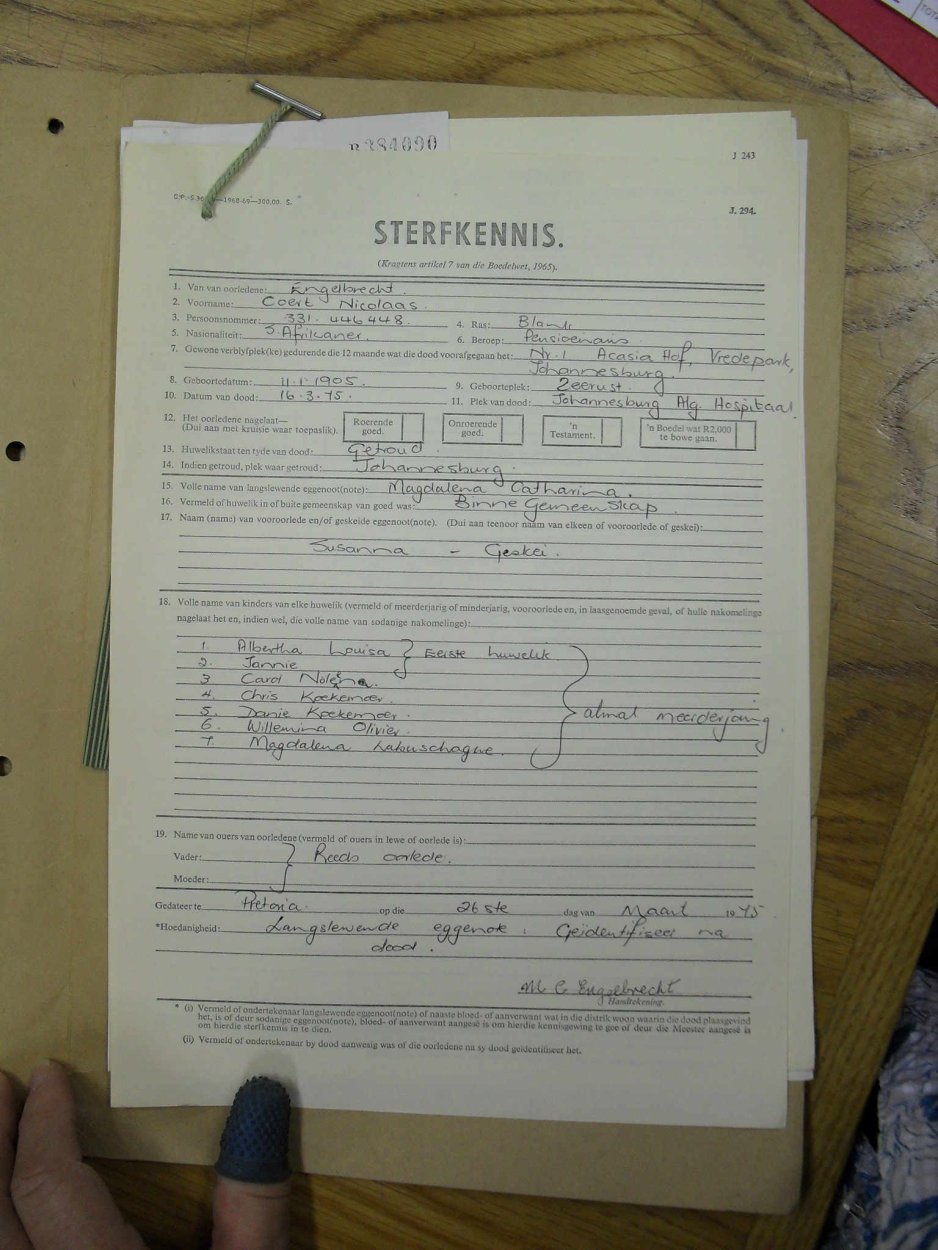 R384090
J 243
—1968-69—300,00. S.
J. 294.
STERFKENNIS.
(Kragtens artikel 7 van die Boedelwet, 1965).
1. Van van oorledene: Engelbrecht.
2. Voorname: Coert Nicolaas.
3. Persoonsnommer: 331. 446448. 4. Ras: Blank
5. Nasionaliteit: S. Afrikaner. 6. Beroep: Pensioenaris
7. Gewone verblyfplek(ke) gedurende die 12 maande wat die dood voorafgegaan het: Nr. 1 Acasia Hof, Vredepark,
Johannesburg.
8. Geboortedatum: 11.1.1905. 9. Geboorteplek: Zeerust.
10. Datum van dood: 16.3.75. 11. Plek van dood: Johannesburg Alg. Hospitaal.
12. Het oorledene nagelaat—
(Dui aan met kruisie waar toepaslik).
Roerende goed.
Onroerende goed.
'n Testament.
'n Boedel wat R2,000 te bowe gaan.
13. Huwelikstaat ten tyde van dood: Getroud.
14. Indien getroud, plek waar getroud: Johannesburg.
15. Volle name van langslewende eggenoot(note): Magdalena Catharina.
16. Vermeld of huwelik in of buite gemeenskap van goed was: Binne Gemeenskap.
17. Naam (name) van vooroorlede en/of geskeide eggenoot(note). (Dui aan teenoor naam van elkeen of vooroorlede of geskei):
Susanna – Geskei.
18. Volle name van kinders van elke huwelik (vermeld of meerderjarig of minderjarig, vooroorlede en, in laasgenoemde geval, of hulle nakomelinge
nagelaat het en, indien wel, die volle name van sodanige nakomelinge):
1. Albertha Louisa } Eerste huwelik
2. Jannie
3. Carol
4. Chris Koekemoer.
5. Danie Koekemoer.
almal meerderjarig
6. Willemina Olivier.
7. Magdalena Labuschagne.
19. Name van ouers van oorledene (vermeld of ouers in lewe of oorlede is):
Vader: } Reeds oorlede.
Moeder:
Gedateer te Pretoria. op die 26 ste dag van Maart 1975
*Hoedanigheid: Langslewende eggenote : Geïdentifiseer na
dood.
M C Engelbrecht
Handtekening.
* (i) Vermeld of ondertekenaar langslewende eggenoot(note) of naaste bloed- of aanverwant wat in die distrik woon waarin die dood plaasgevind
het, is of deur sodanige eggenoot(note), bloed- of aanverwant aangesê is om hierdie kennisgewing te gee of deur die Meester aangesê is
om hierdie sterfkennis in te dien.
(ii) Vermeld of ondertekenaar by dood aanwesig was of die oorledene na sy dood geïdentifiseer het.